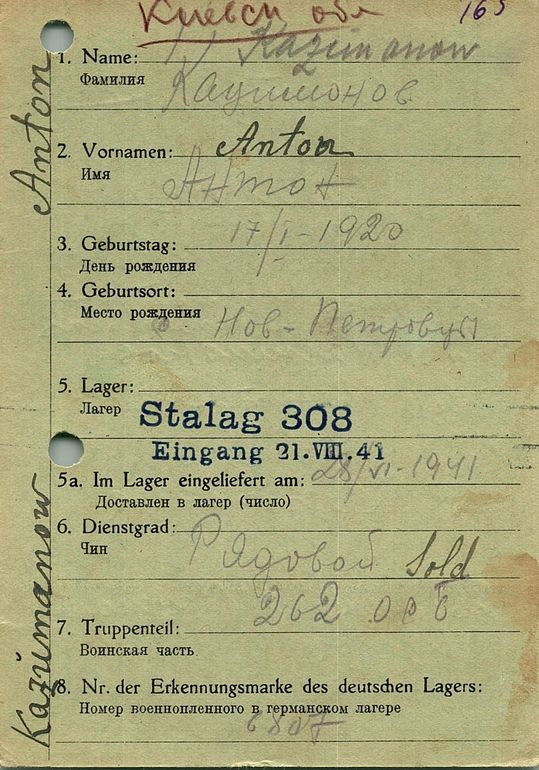 Киевск обл
165
1. Name: Kazimanow
Фамилия
2. Vornamen: Anton
Имя Антон
3. Geburtstag: 17/I-1920
День рождения
4. Geburtsort:
Место рождения Нов-
5. Lager:
Лагер
Stalag 308
Eingang 21.VIII.41
5a. Im Lager eingeliefert am: 28/VI-1941
Доставлен в лагер (число)
6. Dienstgrad:
Чин Рядовой Sold
262
7. Truppenteil:
Воинская часть
8. Nr. der Erkennungsmarke des deutschen Lagers:
Номер военнопленного в германском лагере
6807
Kazimanow Anton